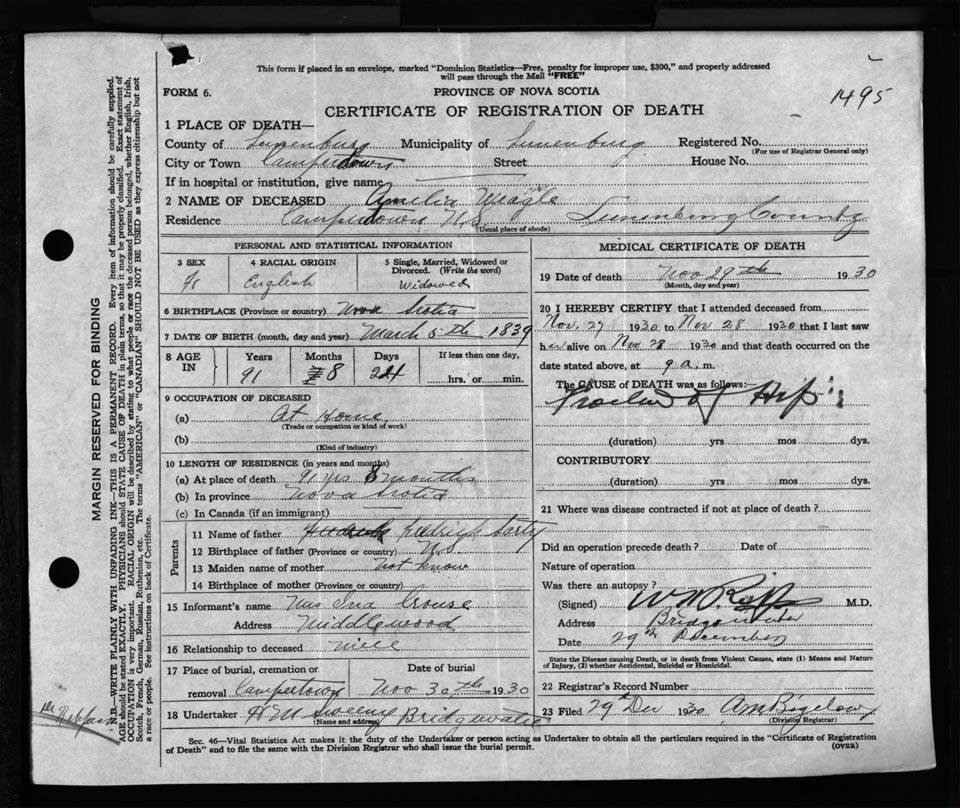 This form if placed in an envelope, marked "Dominion Statistics—Free, penalty for improper use, $300," and properly addressed
will pass through the Mail "FREE"
FORM 6.
PROVINCE OF NOVA SCOTIA
1495
CERTIFICATE OF REGISTRATION OF DEATH
1 PLACE OF DEATH—
County of Lunenburg Municipality of Lunenburg Registered No.
(For use of Registrar General only)
City or Town Camperdown Street House No.
If in hospital or institution, give name
2 NAME OF DECEASED Amelia Weagle
Residence Camperdown N.S Lunenburg County
(Usual place of abode)
PERSONAL AND STATISTICAL INFORMATION
3 SEX
4 RACIAL ORIGIN
English
5 Single, Married, Widowed or
Divorced. (Write the word)
Widowed
6 BIRTHPLACE (Province or country) Nova Scotia
7 DATE OF BIRTH (month, day and year) March 5th 1839
8 AGE IN
Years Months Days If less than one day,
91 8 24 hrs. or min.
9 OCCUPATION OF DECEASED
(a) At Home
(Trade or occupation or kind of work)
(b)
(Kind of industry)
10 LENGTH OF RESIDENCE (in years and months)
(a) At place of death 91 yrs 8 months
(b) In province Nova Scotia
(c) In Canada (if an immigrant)
Parents
11 Name of father
12 Birthplace of father (Province or country) N.S
13 Maiden name of mother not know
14 Birthplace of mother (Province or country)
15 Informant's name Mrs Ina Crouse
Address Middlewood
16 Relationship to deceased
17 Place of burial, cremation or Date of burial
removal Campertown Nov 30th 1930
18 Undertaker H M Sweeny Bridgewater
(Name and address)
MEDICAL CERTIFICATE OF DEATH
19 Date of death Nov 29th 1930
(Month, day and year)
20 I HEREBY CERTIFY that I attended deceased from
Nov. 27 1930 to Nov 28 1930 that I last saw
her alive on Nov 28 1930 and that death occurred on the
date stated above, at 9 a. m.
The CAUSE of DEATH was as follows:—
of Hip
(duration) yrs mos dys.
CONTRIBUTORY
(duration) yrs mos dys.
21 Where was disease contracted if not at place of death?
Did an operation precede death? Date of
Nature of operation
Was there an autopsy?
(Signed) M.D.
Address Bridgewater
Date 29th December
State the Disease causing Death, or in death from Violent Causes, state (1) Means and Nature
of Injury, (2) whether Accidental, Suicidal or Homicidal.
22 Registrar's Record Number
23 Filed 29 Dec 1930 A M Bigelow
(Division Registrar)
Sec. 46—Vital Statistics Act makes it the duty of the Undertaker or person acting as Undertaker to obtain all the particulars required in the "Certificate of Registration
of Death" and to file the same with the Division Registrar who shall issue the burial permit.
(OVER)
MARGIN RESERVED FOR BINDING
N.B.—WRITE PLAINLY WITH UNFADING INK—THIS IS A PERMANENT RECORD. Every item of information should be carefully supplied.
AGE should be stated EXACTLY. PHYSICIANS should STATE CAUSE OF DEATH in plain terms, so that it may be properly classified. Exact statement of
OCCUPATION is very important. RACIAL ORIGIN will be described by stating to what people or race the deceased person belonged, whether English, Irish,
Scotch, French, German, Russian, Ruthenian, etc. The terms "AMERICAN" or "CANADIAN" SHOULD NOT BE USED as they express citizenship but not
a race or people. See instructions on back of Certificate.